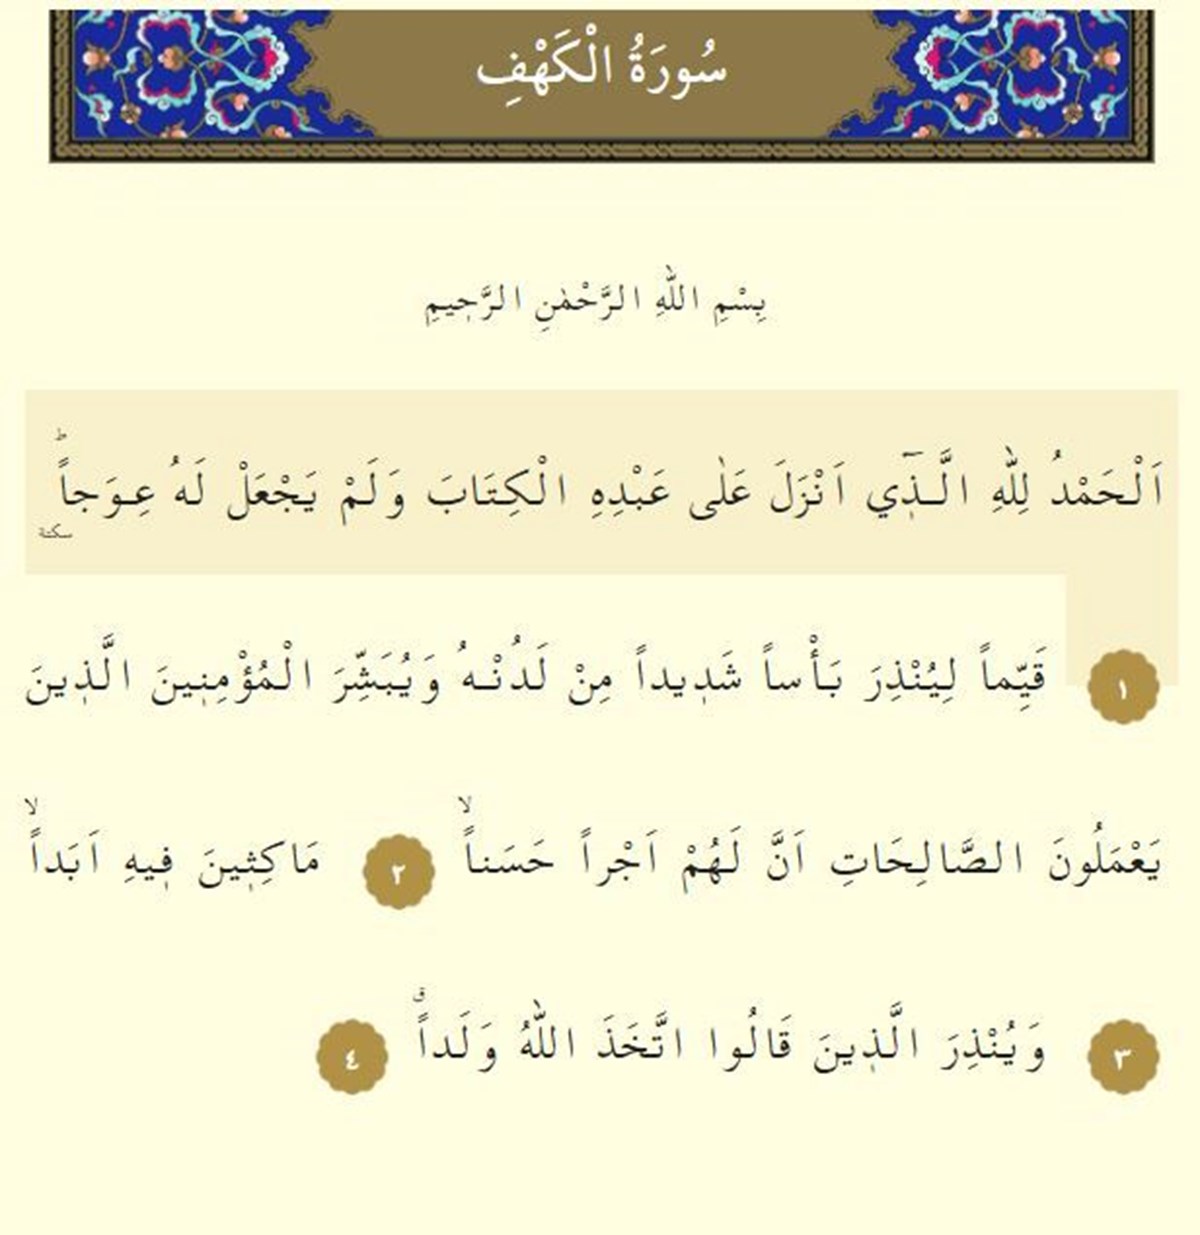 سُورَةُ الْكَهْفِ
بِسْمِ اللّٰهِ الرَّحْمٰنِ الرَّح۪يمِ
اَلْحَمْدُ لِلّٰهِ الَّـذ۪ٓي اَنْزَلَ عَلٰى عَبْدِهِ الْكِتَابَ وَلَمْ يَجْعَلْ لَهُ عِوَجاًۜ سكتة
١ قَيِّماً لِيُنْذِرَ بَأْساً شَد۪يداً مِنْ لَدُنْهُ وَيُبَشِّرَ الْمُؤْمِن۪ينَ الَّذ۪ينَ
يَعْمَلُونَ الصَّالِحَاتِ اَنَّ لَهُمْ اَجْراً حَسَناًۙ ٢ مَاكِث۪ينَ ف۪يهِ اَبَداًۙ
٣ وَيُنْذِرَ الَّذ۪ينَ قَالُوا اتَّخَذَ اللّٰهُ وَلَداًۗ ٤